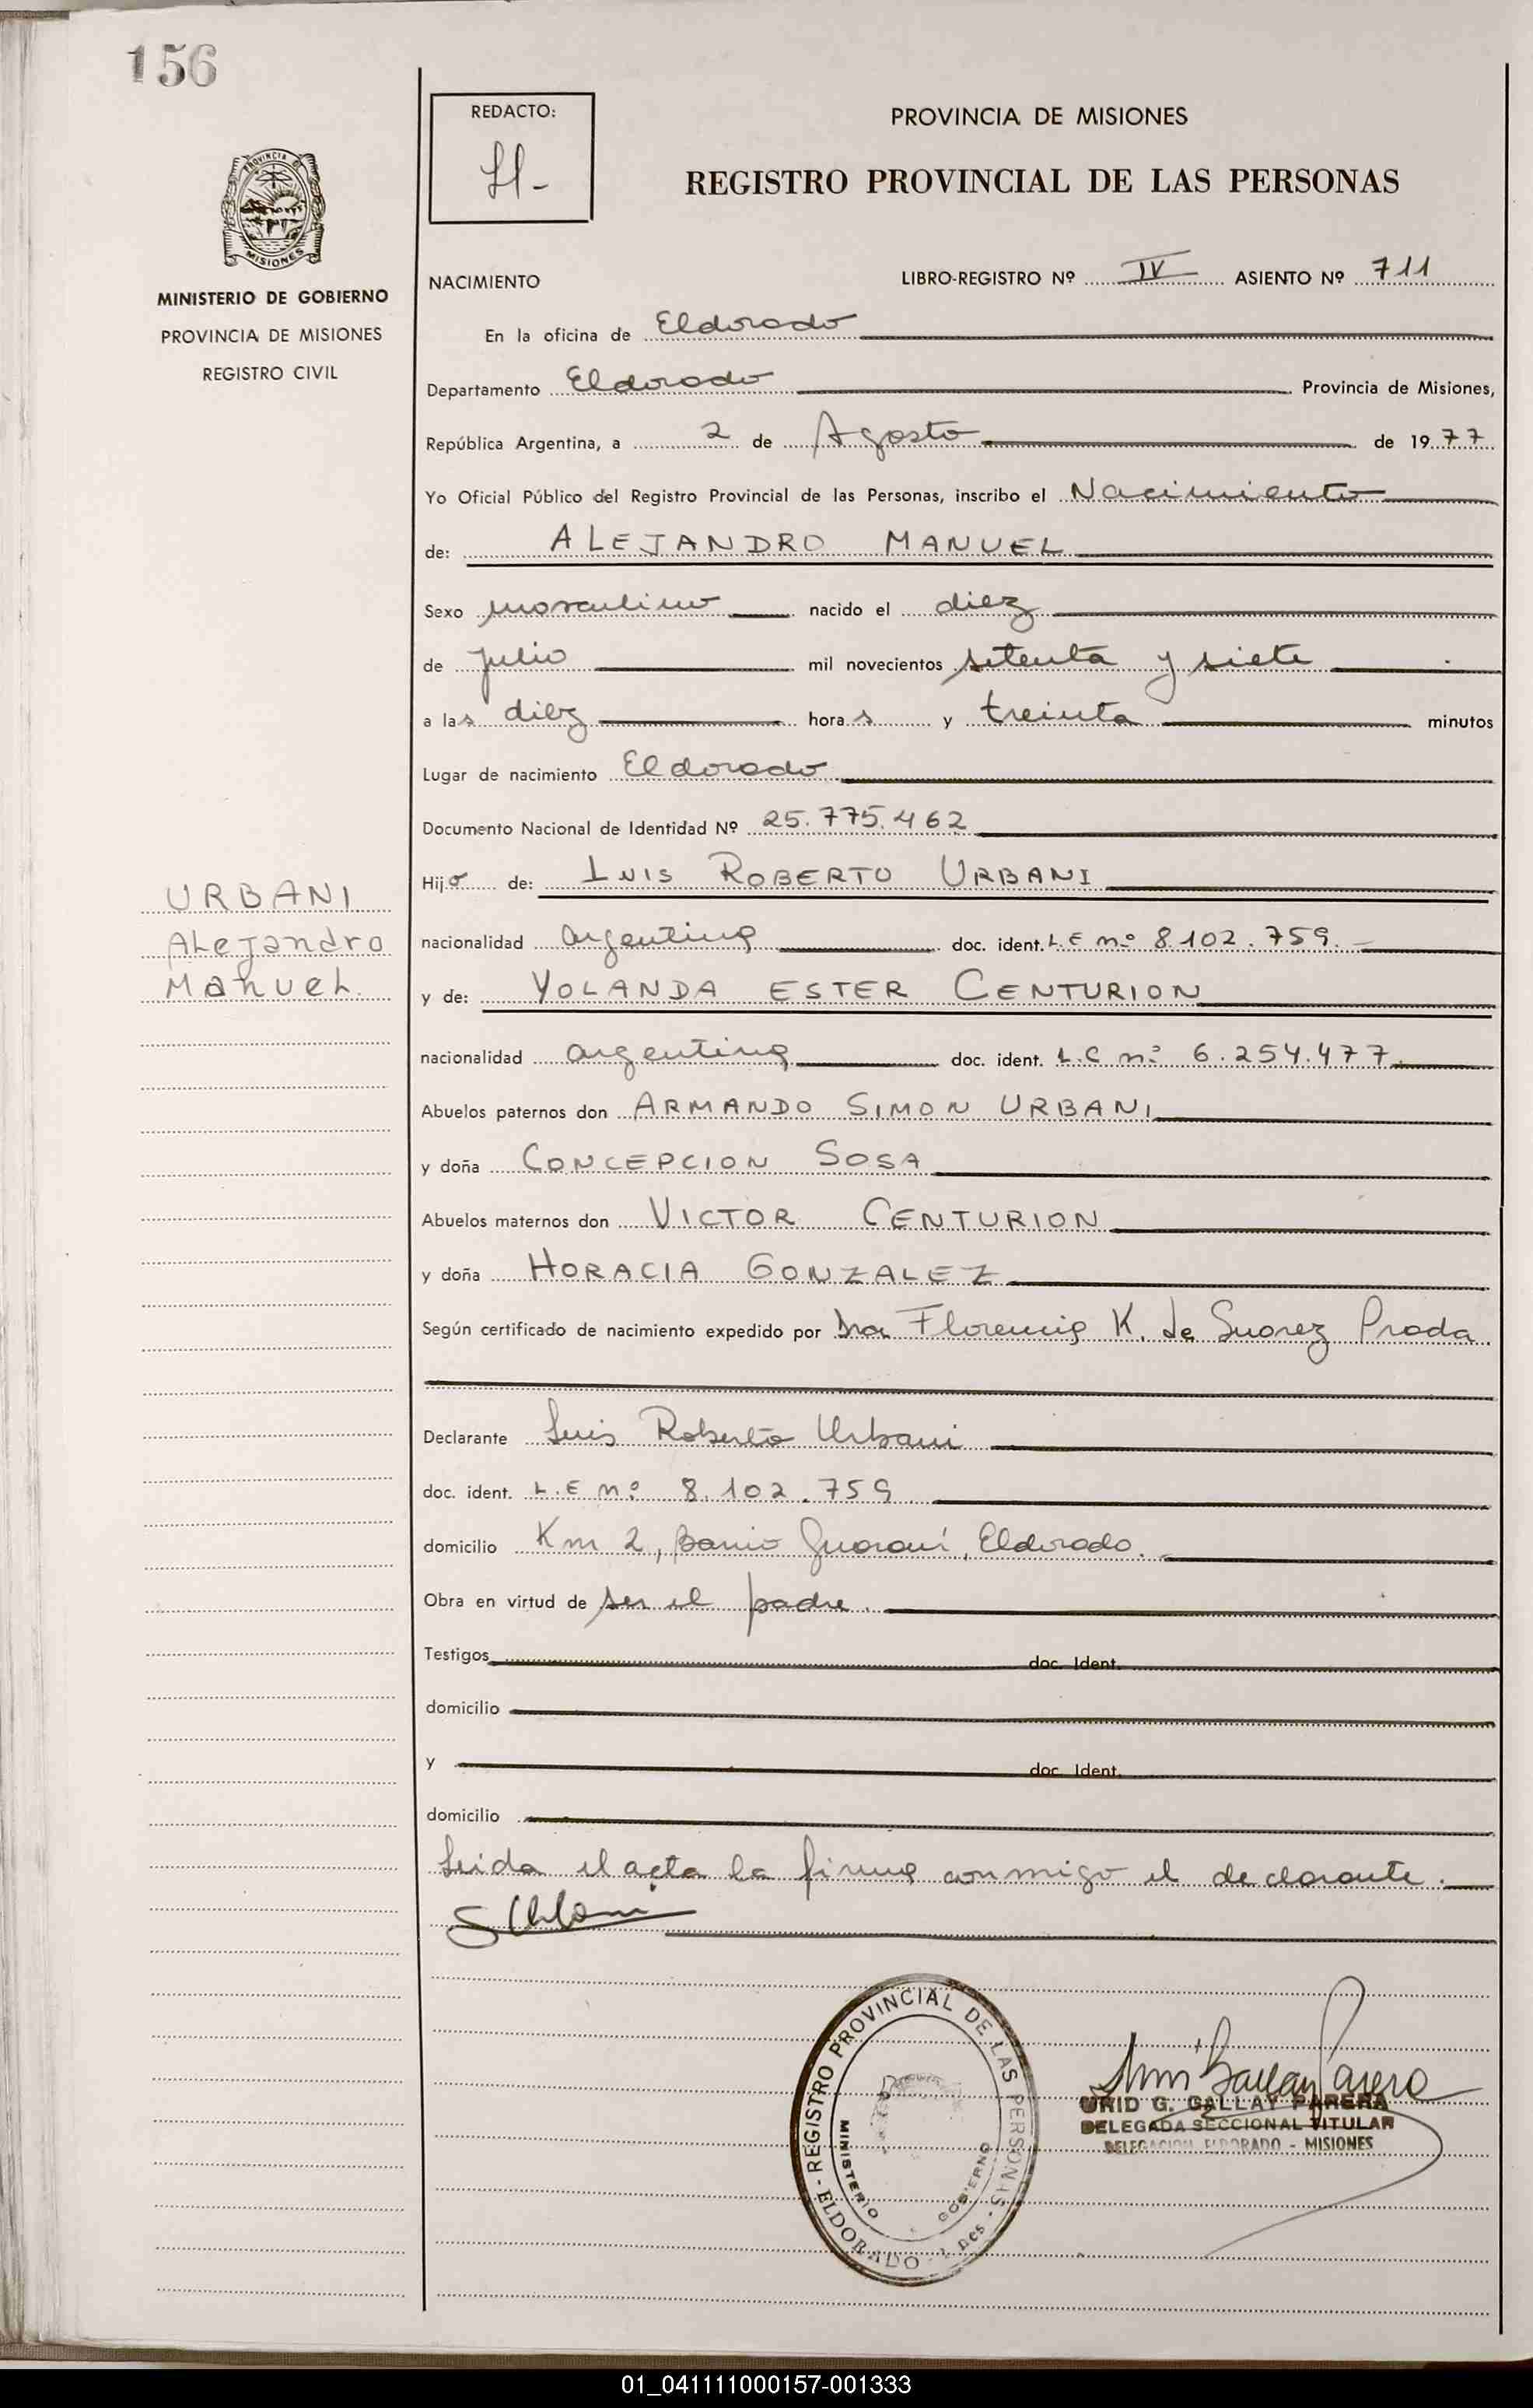 156
REDACTO:
PROVINCIA DE MISIONES
REGISTRO PROVINCIAL DE LAS PERSONAS
PROVINCIA DE
MISIONES
MINISTERIO DE GOBIERNO
PROVINCIA DE MISIONES
REGISTRO CIVIL
NACIMIENTO LIBRO-REGISTRO Nº IV ASIENTO Nº 711
En la oficina de Eldorado
Departamento Eldorado Provincia de Misiones,
República Argentina, a 2 de Agosto de 1977
Yo Oficial Público del Registro Provincial de las Personas, inscribo el Nacimiento
de: ALEJANDRO MANUEL
Sexo masculino nacido el diez
de julio mil novecientos setenta y siete
a las diez horas y treinta minutos
Lugar de nacimiento Eldorado
Documento Nacional de Identidad Nº 25.775.462
Hijo de: LUIS ROBERTO URBANI
URBANI
Alejandro
Manuel
nacionalidad argentina doc. ident. L.E nº 8.102.759.
y de: YOLANDA ESTER CENTURION
nacionalidad argentina doc. ident. L.C nº 6.254.477.
Abuelos paternos don ARMANDO SIMON URBANI
y doña CONCEPCION SOSA
Abuelos maternos don VICTOR CENTURION
y doña HORACIA GONZALEZ
Según certificado de nacimiento expedido por Dra Florencia K. de Suarez Prada
Declarante Luis Roberto Urbani
doc. ident. L.E nº 8.102.759
domicilio Km 2, Barrio Guaraní, Eldorado.
Obra en virtud de ser el padre.
Testigos doc. Ident.
domicilio
y doc. Ident.
domicilio
Leida el acta la firma conmigo el declarante.
REGISTRO PROVINCIAL DE LAS PERSONAS
MINISTERIO GOBIERNO
ELDORADO
URID G. GALLAY PARERA
DELEGADA SECCIONAL TITULAR
DELEGACION ELDORADO - MISIONES
01_041111000157-001333